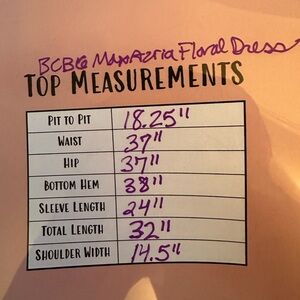 BCBG MaxAzria Floral Dress
TOP MEASUREMENTS
PIT TO PIT 18.25"
WAIST 37"
HIP 37"
BOTTOM HEM 38"
SLEEVE LENGTH 24"
TOTAL LENGTH 32"
SHOULDER WIDTH 14.5"